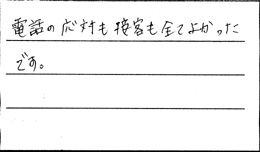 電話の応対も接客も全てよかった
です。